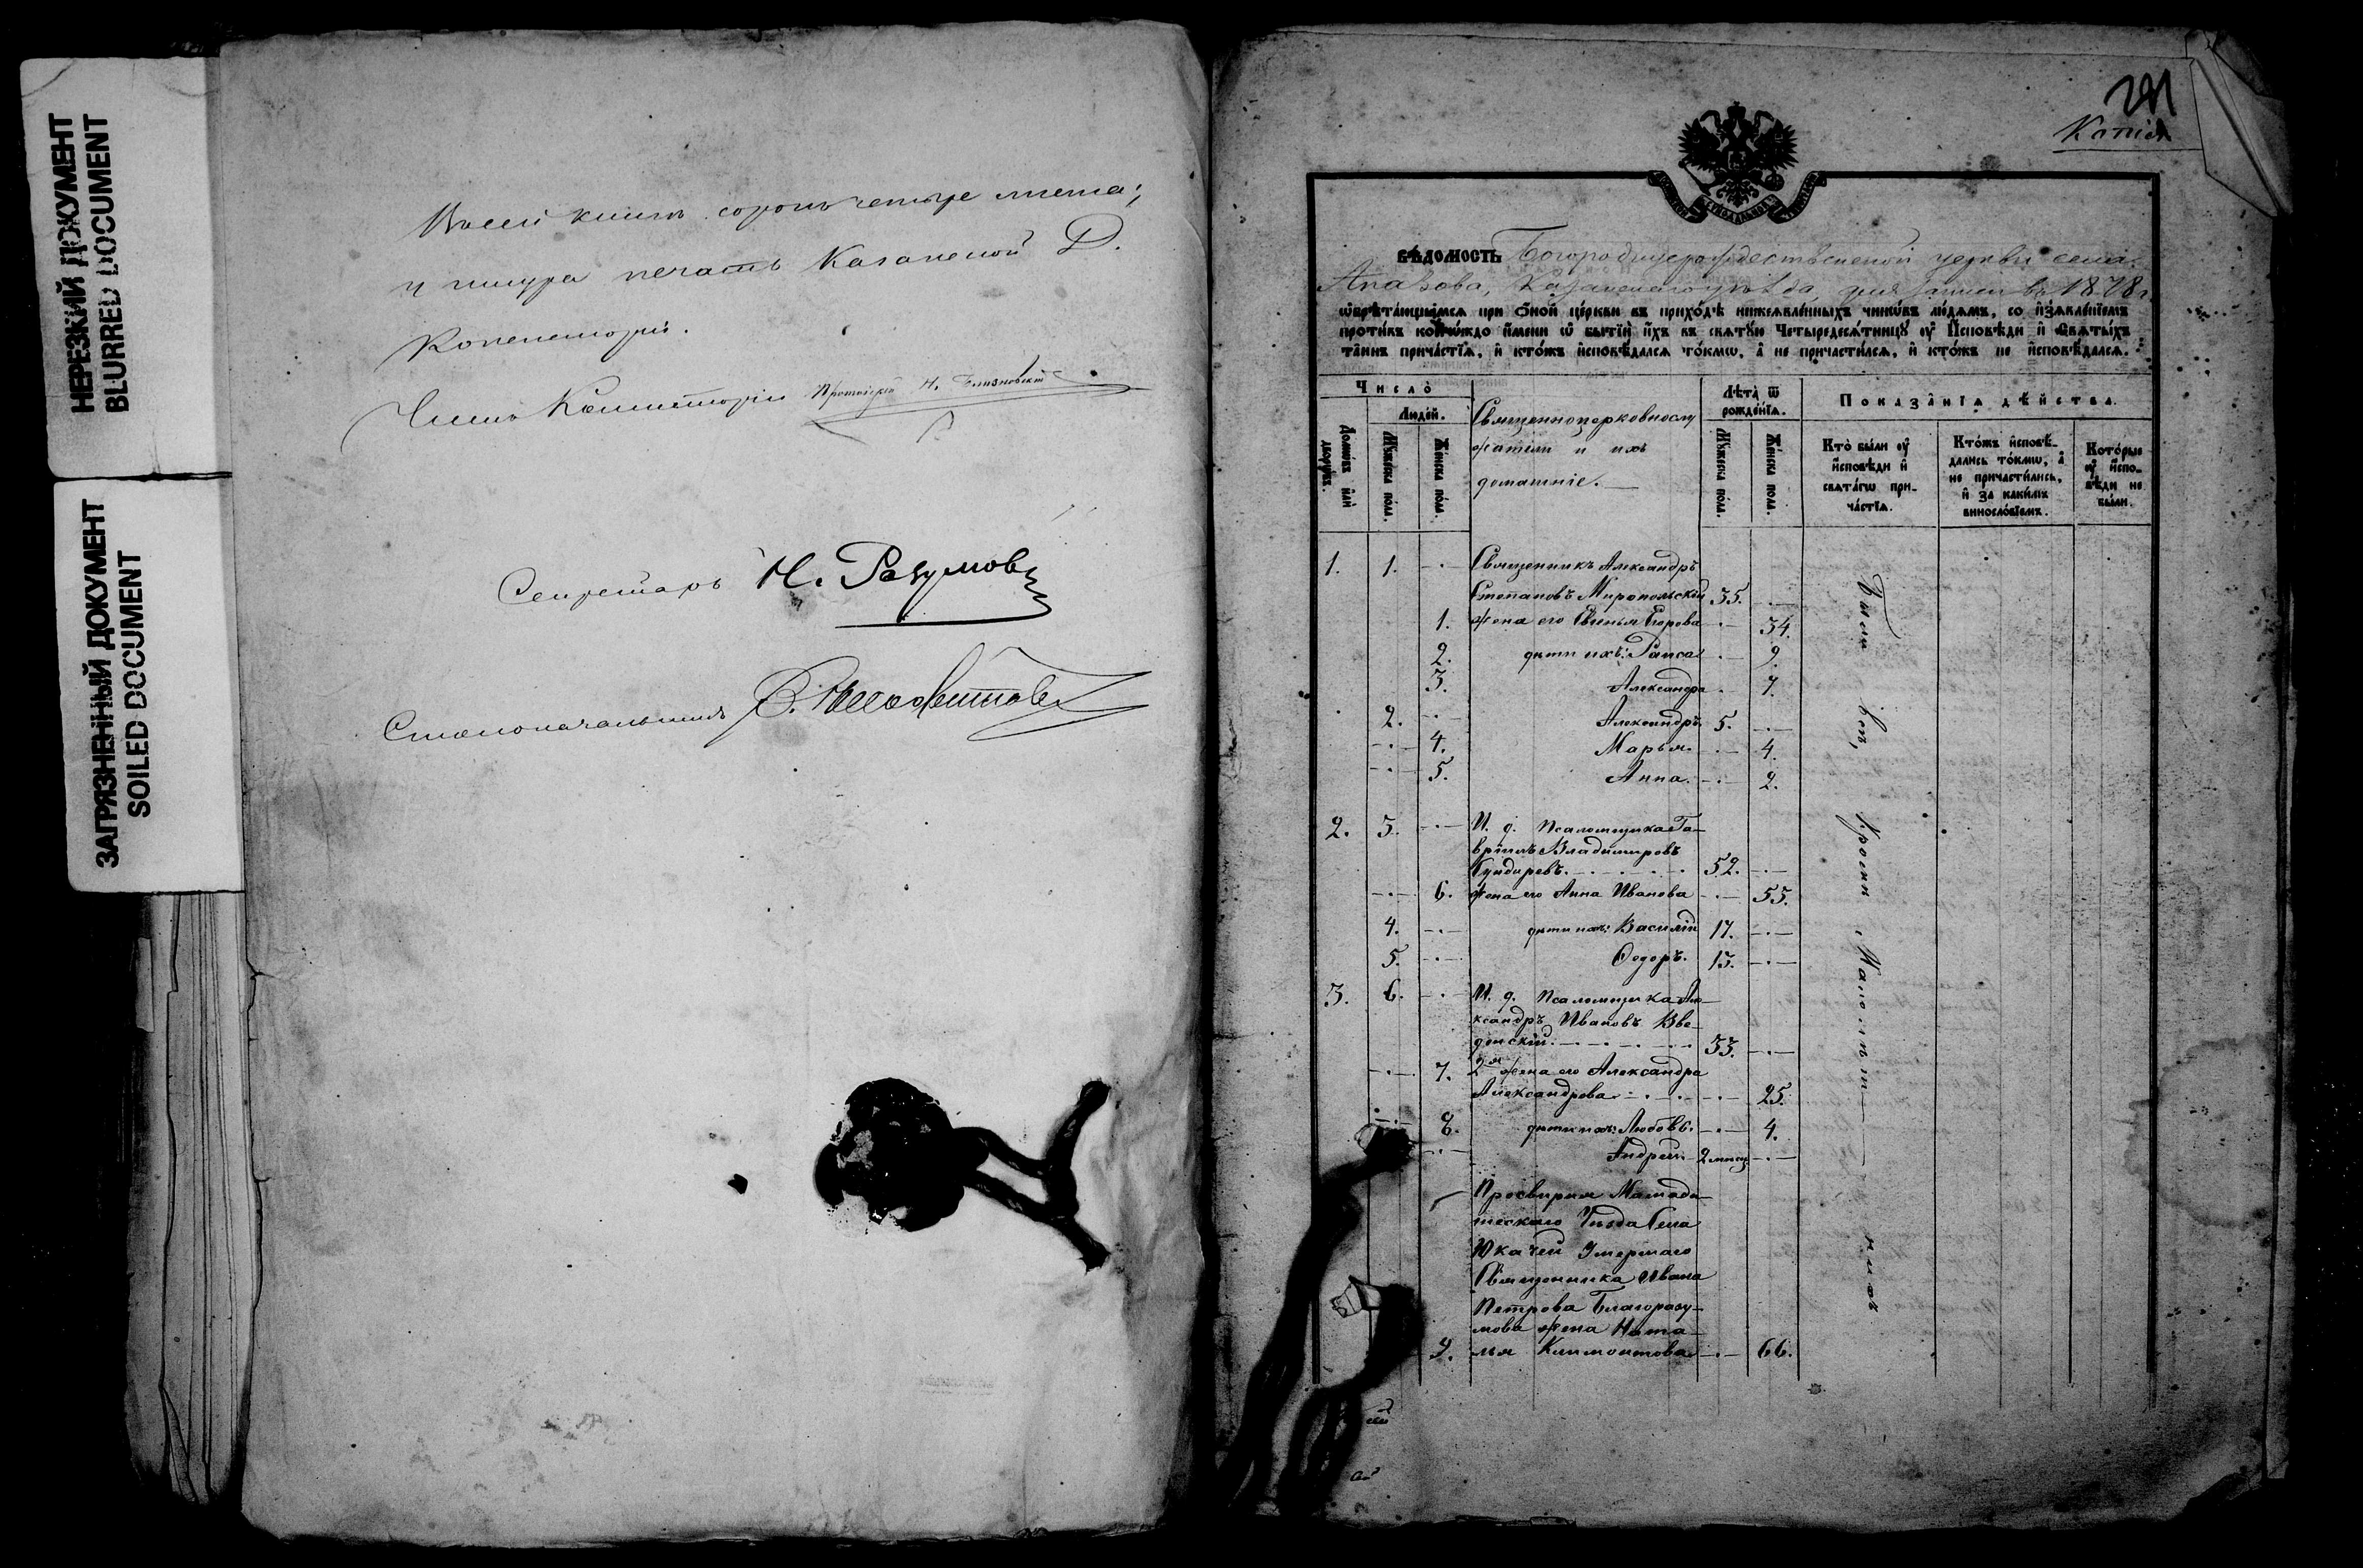 НЕРЕЗКИЙ ДОКУМЕНТ
BLURRED DOCUMENT
ЗАГРЯЗНЕННЫЙ ДОКУМЕНТ
SOILED DOCUMENT
Въ сей книгѣ сорокъ четыре листа;
и шнура печать Казанской Д.
Консисторіи.
Членъ Консисторіи Протоіерей Н.
Секретарь Н. Разумовъ
Столоначальникъ
Копія
ВѢДОМОСТЬ Богородицерождественской церкви села
Апазова, Казанскаго уѣзда, для записи въ 1878 г.
ѡбрѣтающымсѧ при Оной церкви въ приходѣ нижеѧвленныхъ чинѡвъ людѧмъ, со изъѧвленіемъ
противъ коегѡждо имени ѡ бытіи ихъ въ свѧтую Четыредесѧтницу оу Исповѣди и Свѧтыхъ
таинъ причастіѧ, и ктожъ исповѣдалсѧ токмѡ, а не причастилсѧ, и ктожъ не исповѣдалсѧ.
Число
Людей.
Домовъ или дворовъ.
Мужеска полъ.
Женска полъ.
Священноцерковнослу
жители и ихъ
домашніе.
Лѣта ѿ рожденіѧ.
Мужеска полъ.
Женска полъ.
Показаніѧ дѣйства.
Кто были оу исповѣди и свѧтагѡ причастіѧ.
Ктожъ исповѣдались токмѡ, а не причастились, и за какимъ винословіемъ.
Которые оу исповѣди не были.
1. 1. Священникъ Александръ
Степановъ Миропольскій 35.
1. жена его Евгенья Егорова 34.
2. дѣти ихъ: Раиса 9.
3. Александра 7.
2. Александръ 5.
4. Марья 4.
5. Анна. 2.
2. 3. И. д. Псаломщика Га-
вріилъ Владимировъ
Кундыревъ. 52.
6. жена его Анна Иванова 55.
4. дѣти ихъ: Василій 17.
5. Ѳедоръ. 13.
3. 6. И. д. Псаломщика Але-
ксандръ Ивановъ Вве-
денскій. 33.
7. 2я жена его Александра
Александрова 25.
8. дѣти ихъ: Любовь. 4.
Андрей. 2 мѣсяц
Просвирня Мамады-
шскаго Уѣзда Села
Юкачей Умершаго
Священника Ивана
Петрова Благоразу-
мова жена Ната-
9. лья Климонтова 66.
Были всѣ, кромѣ малолѣт-нихъ